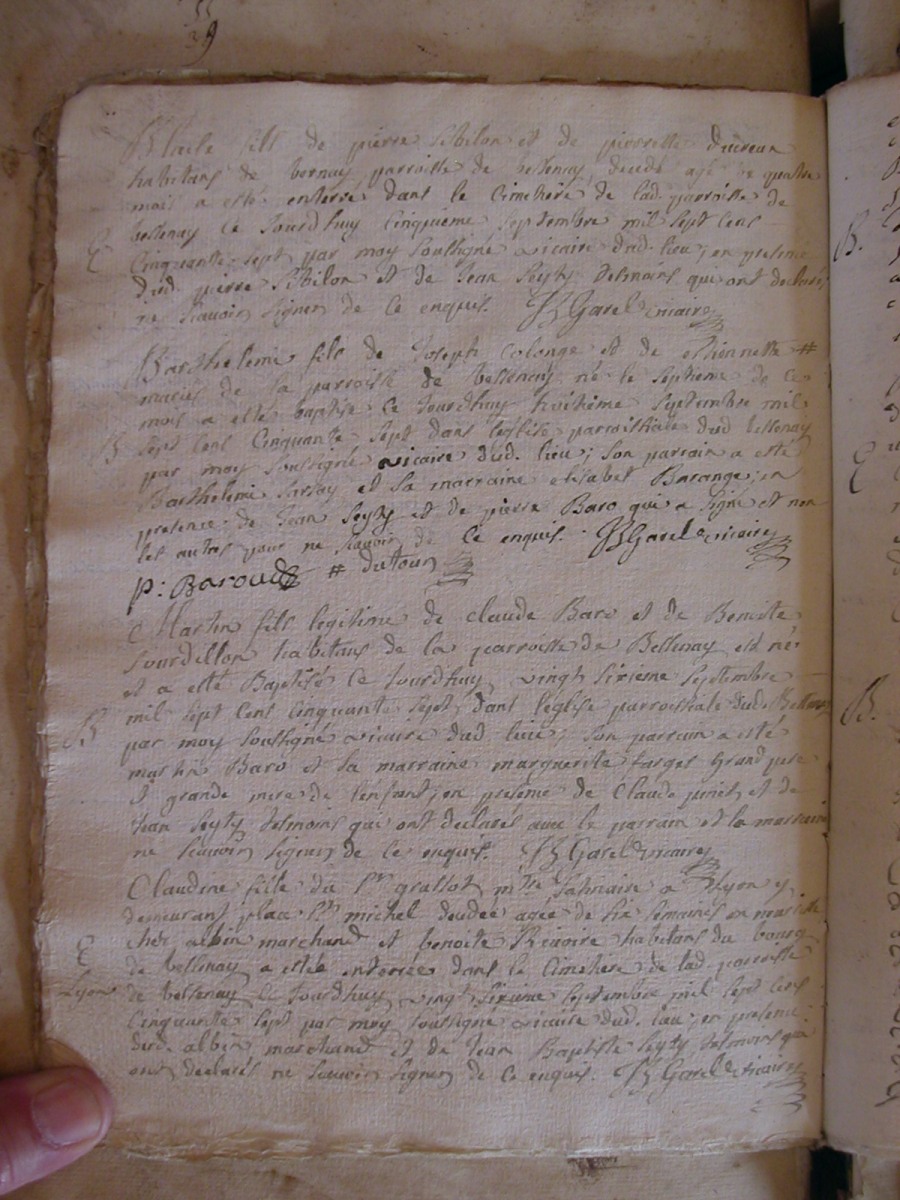 39
Blaise fils de pierre Sibilon et de pierrette Ducreux
habitans de bernay parroisse de bessenay, decedé agé de quatre
mois a esté enterré dans le Cimetiere de lad. parroisse de
bessenay Ce Jourdhuy Cinquieme Septembre mil Sept Cens
E
Cinquante-sept par moy soussigné vicaire dud. lieu; en presence
dud. pierre Sibilon et de Jean Seyty tesmoins qui ont declarés
ne scavoir signer de Ce enquis. JB Garel vicaire
Barthelemi fils de Joseph Colonge et de etiennette #
mariés de la parroisse de bessenay né le septieme de Ce
mois a esté baptisé Ce Jourdhuy huitieme Septembre mil
B
Sept Cens Cinquante Sept dans leglise parroissiale dud bessenay
par moy soussigné vicaire dud. lieu; Son parrain a esté
Barthelemi Sarsay et Sa marraine elisabet Barange; en
presence de Jean Seyty et de pierre Baro qui a signé et non
les autres pour ne scavoir de Ce enquis. JB Garel vicaire
p: Baroud # dutour
Martin fils legitime de claude Baro et de Benoite
Sourdillon habitans de la parroisse de Bessenay est né
et a esté Baptisé Ce Jourdhuy vingt Sixieme Septembre
mil Sept Cent Cinquante Sept, dans leglise parroissiale dud. Bessenay
B
par moy soussigné vicaire dud lieu; Son parrain a esté
martin Baro et Sa marraine marguerite farges Grand pere
& grande mere de lenfant; en presence de Claude et de
Jean Seyty tesmoins qui ont declarés avec le parrain et la marraine
ne scavoir signer de Ce enquis. JB Garel vicaire
Claudine fille du Sr grassot, mtre a Lyon y
demeurant place St michel decedée agée de Six Semaines en nourrice
chez albin marchand et benoite Rivoire habitans du bourg
E
de bessenay a estée enterrée dans le Cimetiere de lad parroisse
Lyon
de bessenay Ce Jourdhuy vingt Sixieme Septembre mil Sept Cens
Cinquante Sept par moy soussigné vicaire dud. lieu; en presence
dud. albin marchand et de Jean Baptiste Seyty, tesmoins qui
ont declarés ne scavoir signer de Ce enquis. JB Garel vicaire